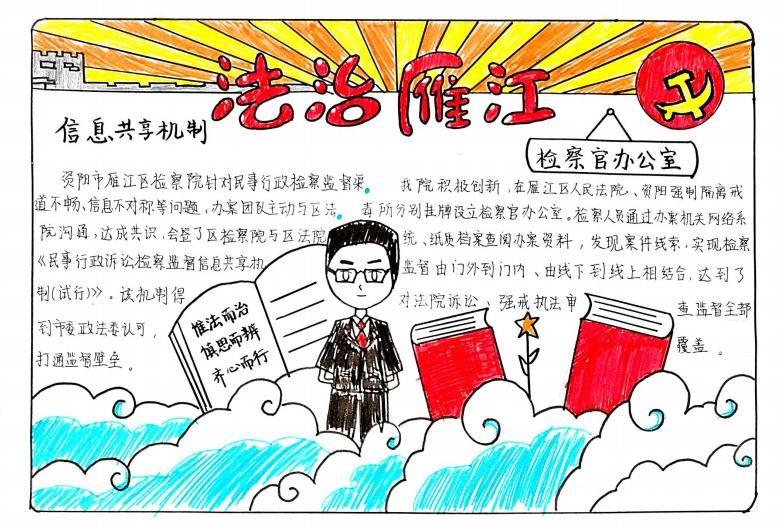 法治雁江
信息共享机制
资阳市雁江区检察院针对民事行政检察监督渠
道不畅、信息不对称等问题，办案团队主动与区法
院沟通，达成共识，会签了区检察院与区法院
《民事行政诉讼检察监督信息共享机
制(试行)》。该机制得
到市委政法委认可，
打通监督壁垒。
惟法而治
慎思而辨
齐心而行
检察官办公室
我院积极创新，在雁江区人民法院、资阳强制隔离戒
毒所分别挂牌设立检察官办公室。检察人员通过办案机关网络系
统、纸质档案查阅办案资料，发现案件线索，实现检察
监督由门外到门内、由线下到线上相结合，达到了
对法院诉讼、强戒执法审查监督全部
覆盖。